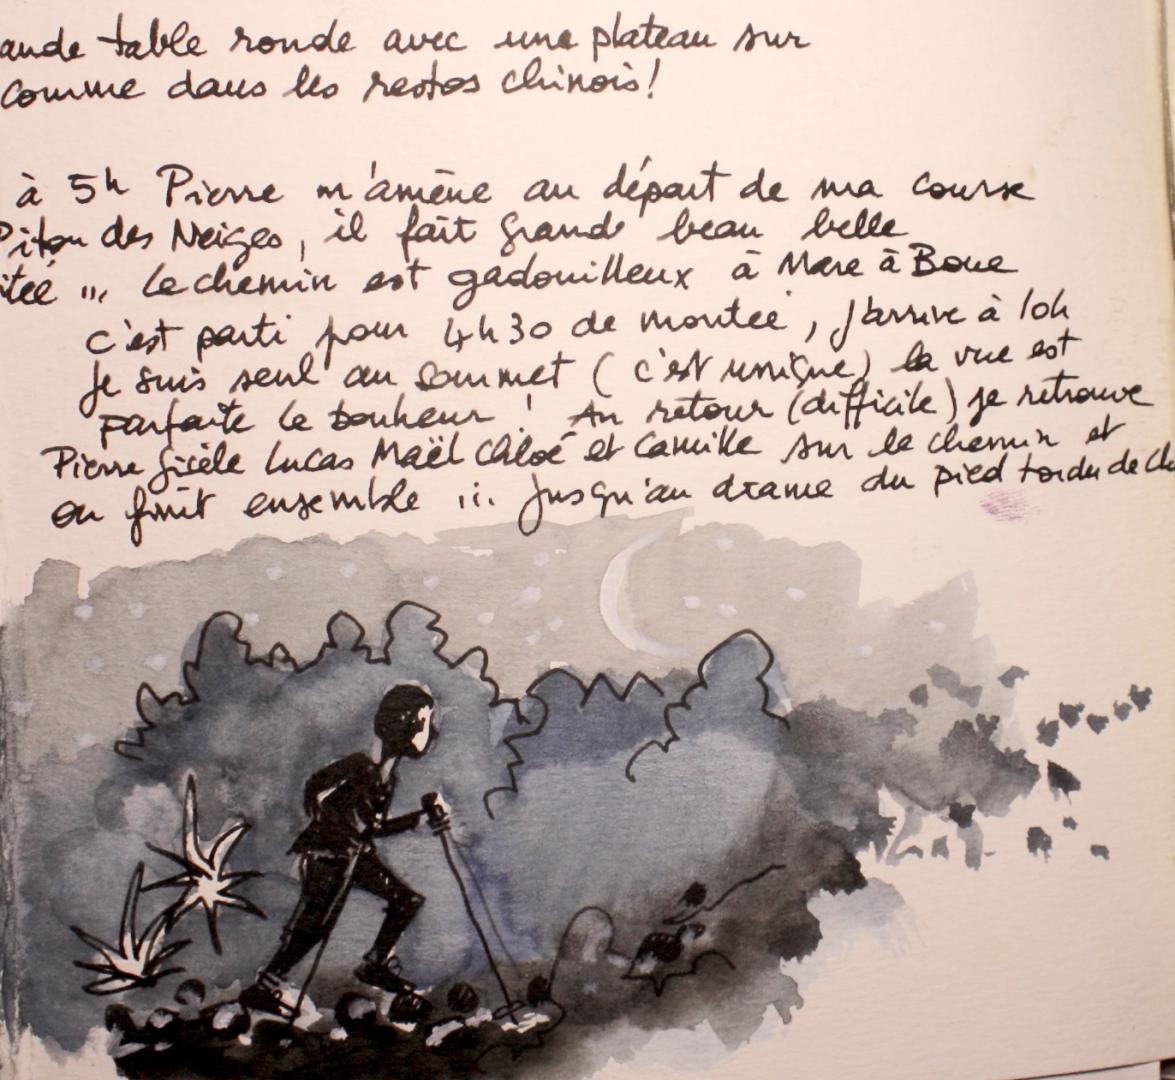 ande table ronde avec une plateau sur
comme dans les restos chinois!
à 5h Pierre m'amène au départ de ma course
Piton des Neiges, il fait grand beau belle
itée ... Le chemin est gadouilleux à Mare à Boue
c'est parti pour 4h30 de montée, j'arrive à 10h
je suis seul au sommet (c'est unique) la vue est
parfaite le bonheur! Au retour (difficile) je retrouve
Pierre Gisèle Lucas Maël Chloé et Camille sur le chemin et
on finit ensemble ... jusqu'au drame du pied tordu de Ch